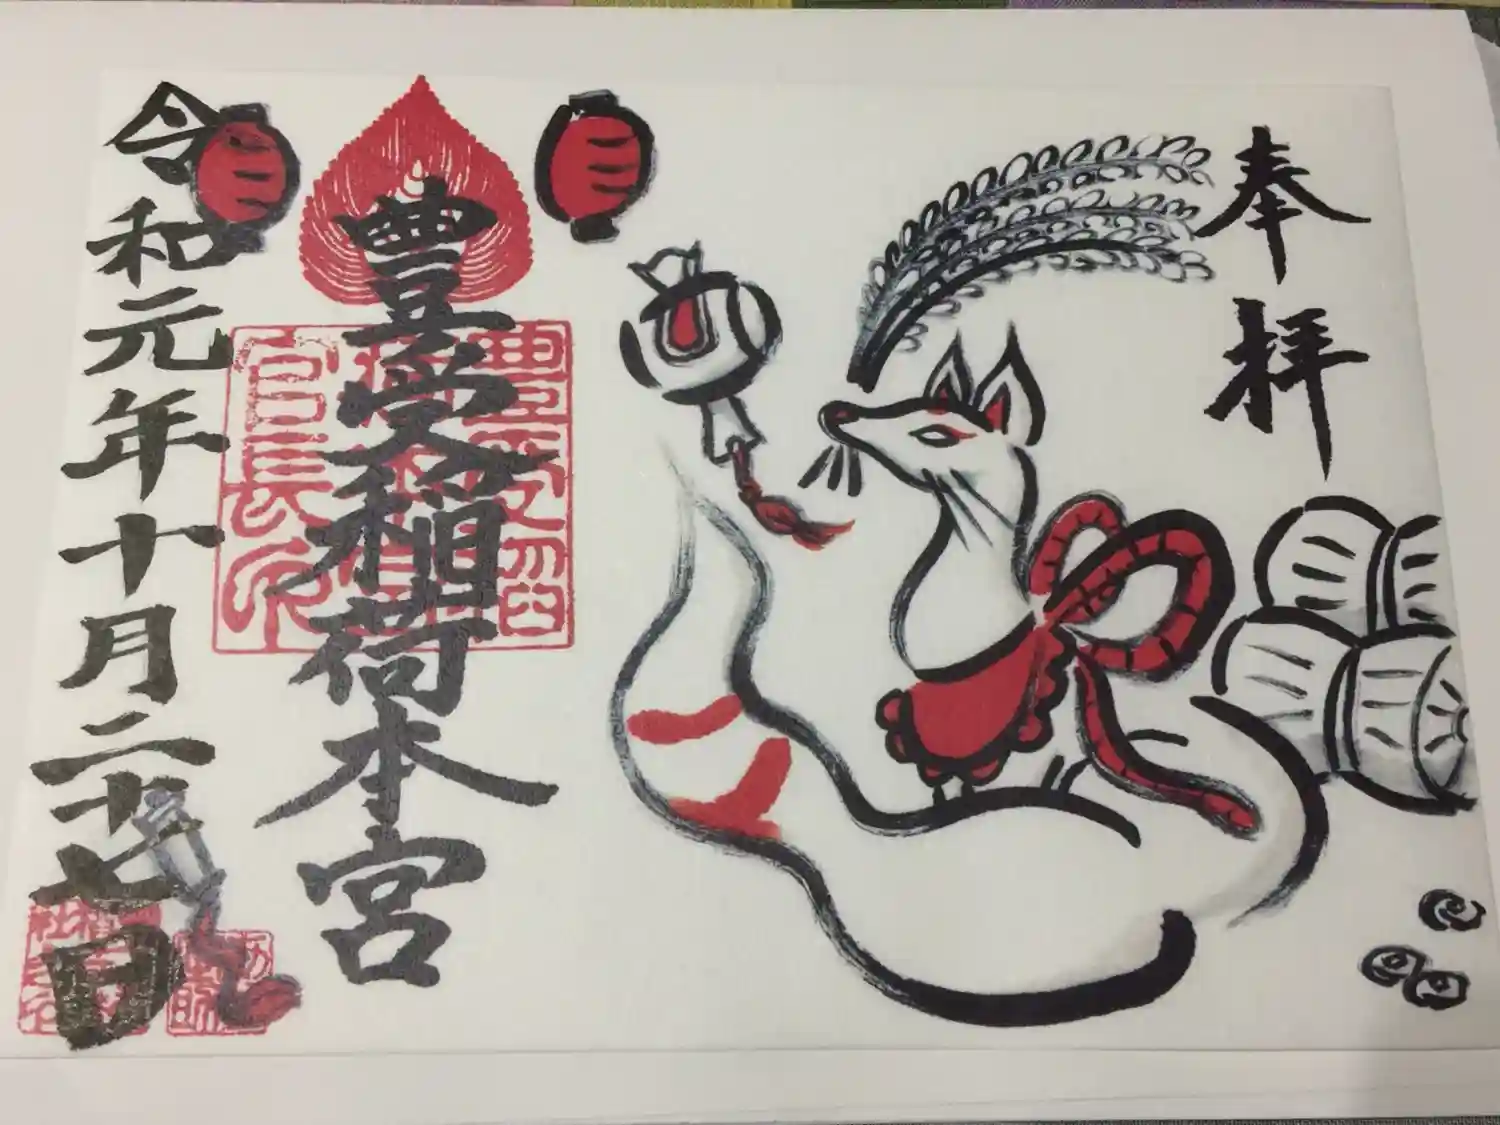 奉拝
豊受稲荷本宮
令和元年十月二十七日